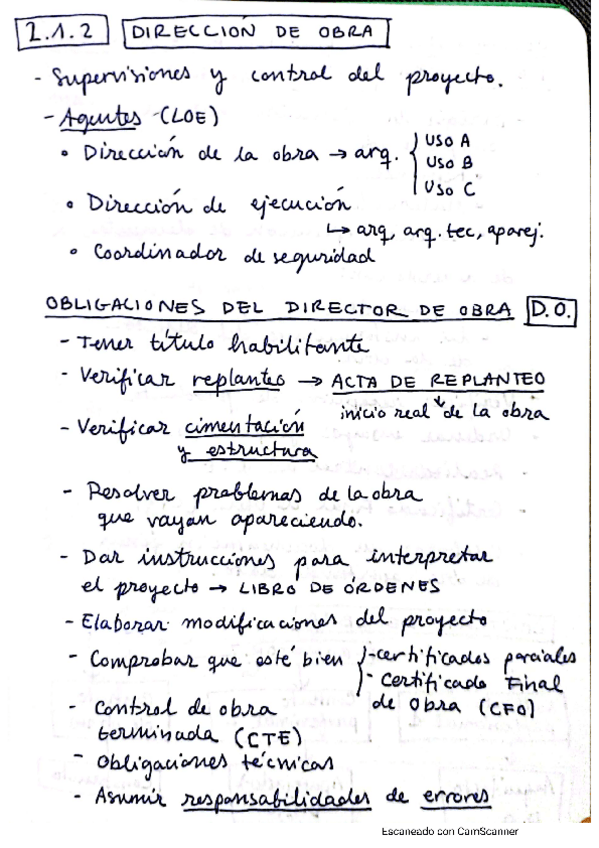 2.1.2 DIRECCIÓN DE OBRA
- Supervisiones y control del proyecto.
- Agentes - (LOE)
• Dirección de la obra → arq. { USO A
USO B
USO C
• Dirección de ejecución
↳ arq, arq. tec, aparej.
• Coordinador de seguridad
OBLIGACIONES DEL DIRECTOR DE OBRA D.O.
- Tener título habilitante
- Verificar replanteo → ACTA DE REPLANTEO
inicio real de la obra
- Verificar cimentación
y estructura
- Resolver problemas de la obra
que vayan apareciendo.
- Dar instrucciones para interpretar
el proyecto → LIBRO DE ÓRDENES
- Elaborar modificaciones del proyecto
- Comprobar que esté bien { - certificados parciales
- Certificado Final
de obra (CFO)
- Control de obra
terminada (CTE)
- Obligaciones técnicas
- Asumir responsabilidades de errores
Escaneado con CamScanner